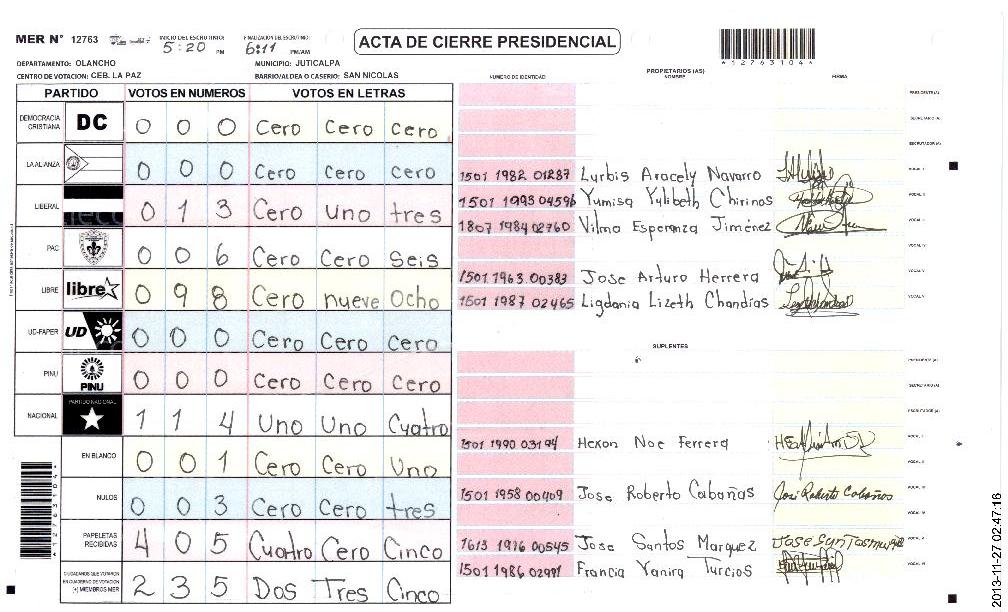 MER N° 12763 INICIO DEL ESCRUTINIO: 5:20 PM FINALIZACION DEL ESCRUTINIO: 6:11 PM/AM
ACTA DE CIERRE PRESIDENCIAL
*12763104*
DEPARTAMENTO: OLANCHO MUNICIPIO: JUTICALPA
CENTRO DE VOTACION: CEB. LA PAZ BARRIO/ALDEA O CASERIO: SAN NICOLAS
PARTIDO VOTOS EN NUMEROS VOTOS EN LETRAS
DEMOCRACIA CRISTIANA DC 0 0 0 Cero Cero Cero
LA ALIANZA 0 0 0 Cero Cero Cero
LIBERAL 0 1 3 Cero Uno tres
PAC 0 0 6 Cero Cero Seis
LIBRE libre 0 9 8 Cero nueve Ocho
UD-FAPER UD 0 0 0 Cero Cero Cero
PINU PINU 0 0 0 Cero Cero Cero
NACIONAL PARTIDO NACIONAL 1 1 4 Uno Uno Cuatro
EN BLANCO 0 0 1 Cero Cero Uno
NULOS 0 0 3 Cero Cero tres
PAPELETAS RECIBIDAS 4 0 5 Cuatro Cero Cinco
CIUDADANOS QUE VOTARON EN CUADERNO DE VOTACION (+) MIEMBROS MER 2 3 5 Dos Tres Cinco
PROPIETARIOS (AS)
NUMERO DE IDENTIDAD NOMBRE FIRMA
PRESIDENTE (A)
SECRETARIO (A)
ESCRUTADOR (A)
1501 1982 01287 Lurbis Aracely Navarro VOCAL I
1501 1993 04596 Yumisa Yulibeth Chirinos VOCAL II
1807 1984 02760 Vilma Esperanza Jiménez VOCAL III
VOCAL IV
1501 1963 00383 Jose Arturo Herrera VOCAL V
1501 1987 02465 Ligdania Lizeth Chandias
SUPLENTES
PRESIDENTE (A)
SECRETARIO (A)
ESCRUTADOR (A)
1501 1990 03194 Hexon Noe Ferrera VOCAL I
VOCAL II
1501 1958 00409 Jose Roberto Cabañas Jose Roberto Cabañas VOCAL III
VOCAL IV
1613 1976 00545 Jose Santos Marquez VOCAL V
1501 1986 02991 Francia Yanira Turcios VOCAL VI
2013-11-27 02:47:16